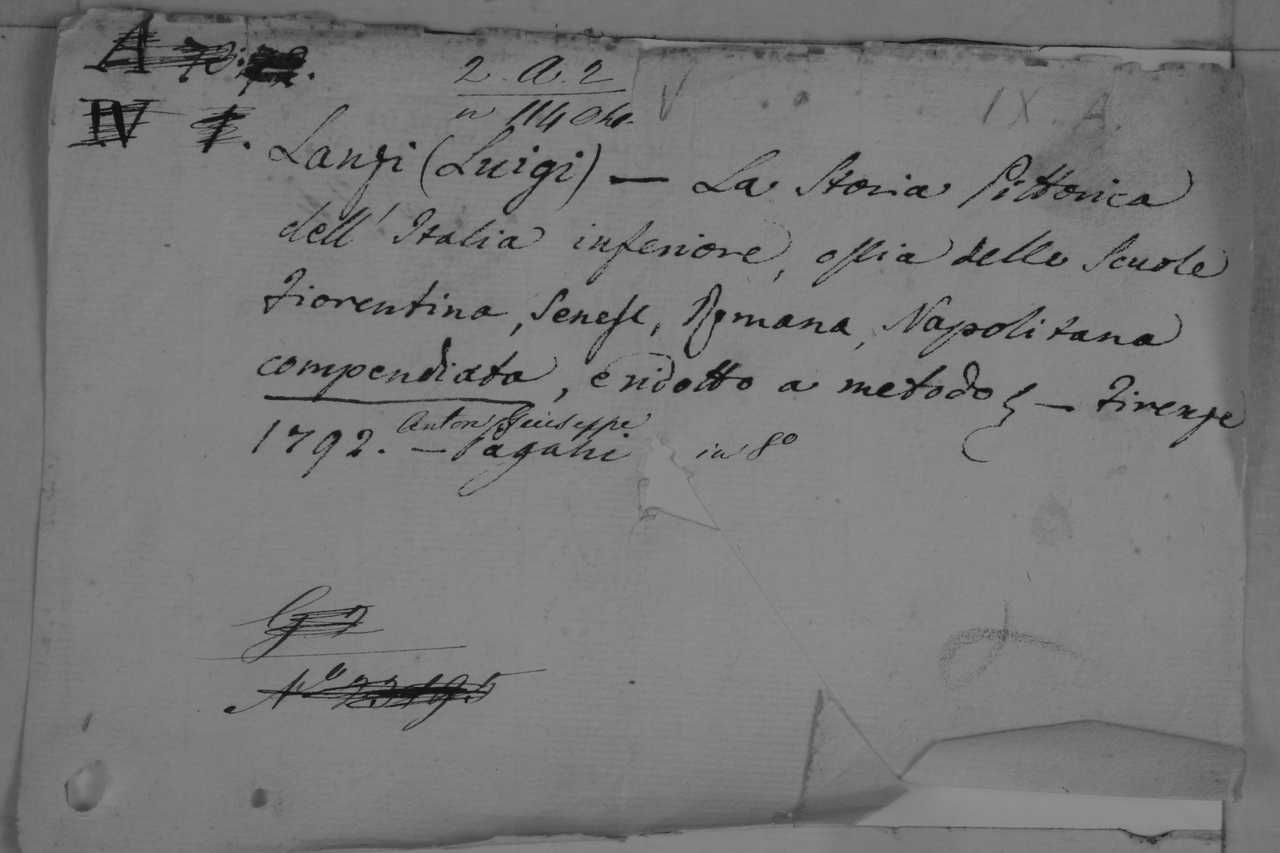 A
2. A. 2
V
IX. A.
IV 1.
Lanzi (Luigi) — La Storia Pittorica
dell' Italia inferiore, ossia delle Scuole
Fiorentina, Senese, Romana, Napolitana
compendiata, e ridotto a metodo — Firenze
Anton Giuseppe
1792. — Pagani in 8º
Nº